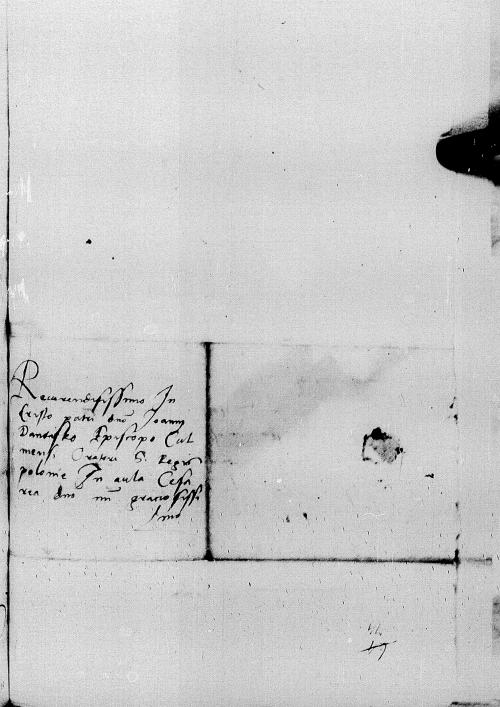 Reverendissimo In
Cristo patri dno Joanni
Dantisko Episcopo Cul
mensi Oratori S. Regis
polonie In aula Cesa
rea dno mi graciosissi
imo